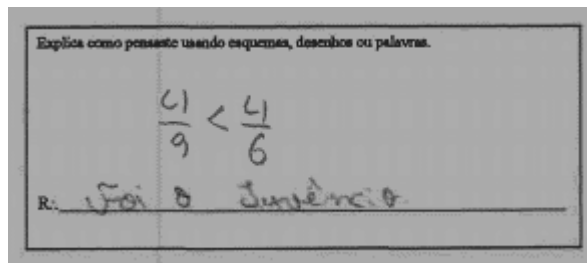 Explica como pensaste usando esquemas, desenhos ou palavras.
4/9 < 4/6
R: Foi o Juvêncio